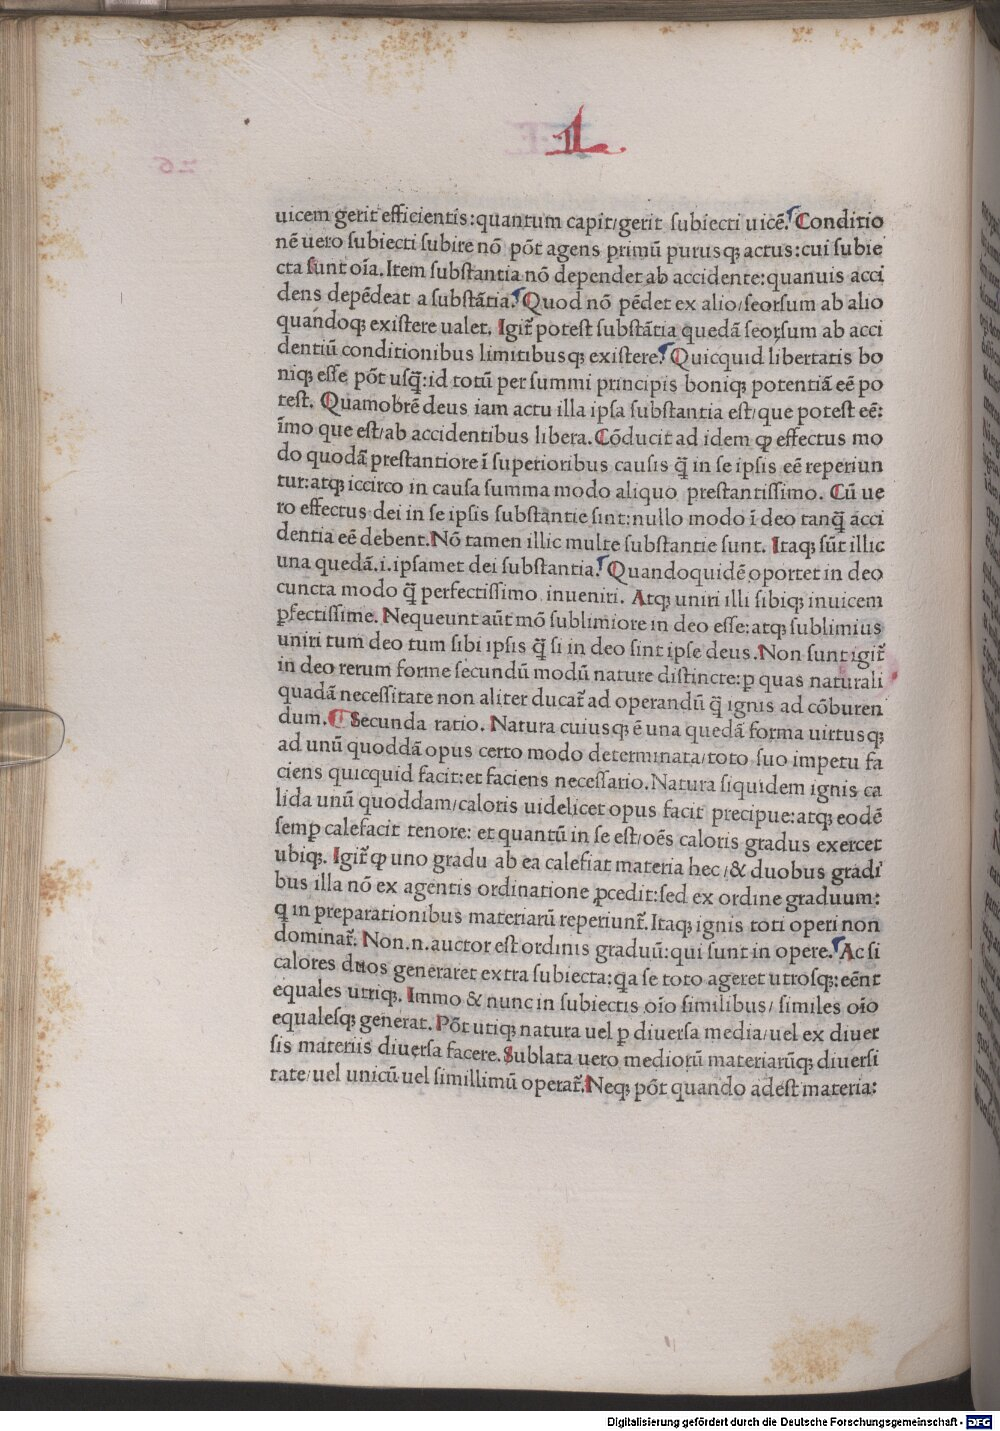 L
uicem gerit efficientis:quantum capit/gerit subiecti uicē. Conditio
nē uero subiecti subire nō pōt agens primū purusq; actus:cui subie
cta sunt oīa. Item substantia nō dependet ab accidente:quanuis acci
dens depēdeat a substātia. Quod nō pēdet ex alio/seorsum ab alio
quandoq; existere ualet. Igit̄ potest substātia quedā seorsum ab acci
dentiū conditionibus limitibusq; existere. Quicquid libertatis bo
niq; esse pōt usq̄:id totū per summi principis boniq; potentiā eē po
test. Quamobrē deus iam actu illa ipsa substantia est/que potest eē:
īmo que est/ab accidentibus libera. Cōducit ad idem ꝙ effectus mo
do quodā prestantiore ī superioribus causis q̄ in se ipsis eē reperiun
tur:atq; iccirco in causa summa modo aliquo prestantissimo. Cū ue
ro effectus dei in se ipsis substantie sint:nullo modo ī deo tanq̄ acci
dentia eē debent. Nō tamen illic multe substantie sunt. Itaq; sūt illic
una quedā.i.ipsamet dei substantia. Quandoquidē oportet in deo
cuncta modo q̄ perfectissimo inueniri. Atq; uniri illi sibiq; inuicem
ꝑfectissime. Nequeunt aūt mō sublimiore in deo esse:atq; sublimius
uniri tum deo tum sibi ipsis q̄ si in deo sint ipse deus. Non sunt igit̄
in deo rerum forme secundū modū nature distincte:ꝑ quas naturali
quadā necessitate non aliter ducat̄ ad operandū q̄ ignis ad cōburen
dum. ¶ Secunda ratio. Natura cuiusq; ē una quedā forma uirtusq;
ad unū quoddā opus certo modo determinata/toto suo impetu fa
ciens quicquid facit:et faciens necessario. Natura siquidem ignis ca
lida unū quoddam/caloris uidelicet opus facit precipue:atq; eodē
semꝑ calefacit tenore: et quantū in se est/oēs caloris gradus exercet
ubiq;. Igit̄ ꝙ uno gradu ab ea calefiat materia hec/& duobus gradi
bus illa nō ex agentis ordinatione ꝓcedit:sed ex ordine graduum:
q̄ in preparationibus materiarū reperiunt̄. Itaq; ignis toti operi non
dominat̄. Non.n.auctor est ordinis graduū:qui sunt in opere. Ac si
calores duos generaret extra subiecta:q̄a se toto ageret utrosq;:eēnt
equales utriq;. Immo & nunc in subiectis oīo similibus/ similes oīo
equalesq; generat. Pōt utiq; natura uel ꝑ diuersa media/uel ex diuer
sis materiis diuersa facere. Sublata uero mediorū materiarūq; diuersi
tate/uel unicū uel simillimū operat̄. Neq; pōt quando adest materia:
Digitalisierung gefördert durch die Deutsche Forschungsgemeinschaft - DFG